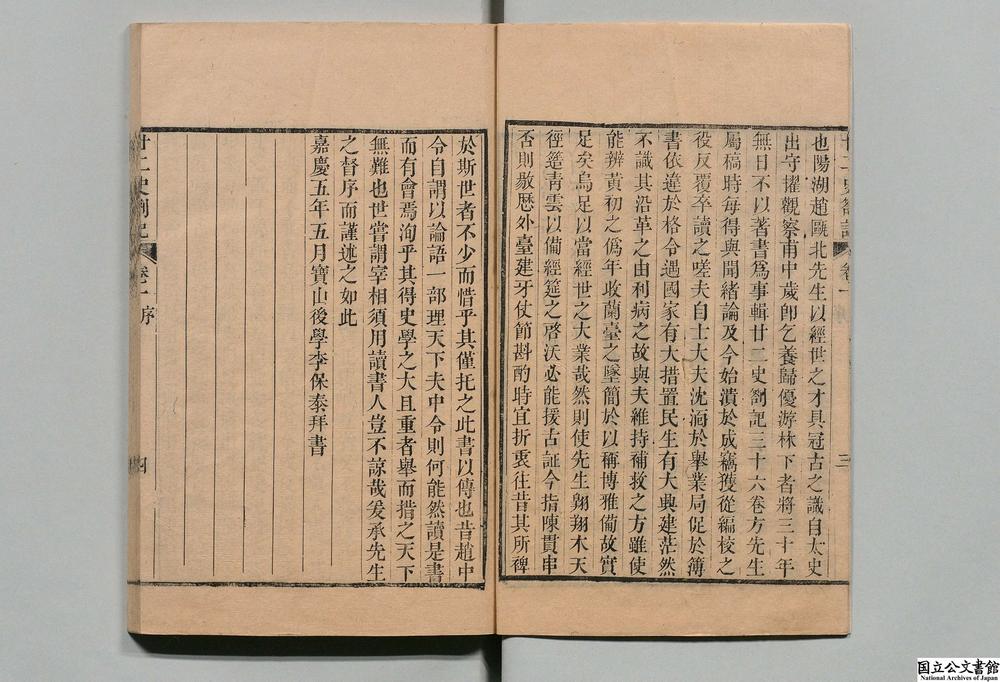 也陽湖趙甌北先生以經世之才具冠古之識自太史
出守擢觀察甫中歲卽乞養歸優游林下者將三十年
無日不以著書爲事輯廿二史劄記三十六卷方先生
屬稿時每得與聞緒論及今始潰於成竊獲從編校之
役反覆卒讀之嗟夫自士大夫沈湎於舉業局促於簿
書依違於格令遇國家有大措置民生有大興建茫然
不識其沿革之由利病之故與夫維持補救之方雖使
能辨黃初之僞年收蘭臺之墜簡於以稱博雅備故實
足矣烏足以當經世之大業哉然則使先生翱翔木天
徑簉青雲以備經筵之啓沃必能援古証今指陳貫串
否則敭歷外臺建牙仗節斟酌時宜折衷往昔其所裨
廿二史劄記 卷一 三
於斯世者不少而惜乎其僅托之此書以傳也昔趙中
令自謂以論語一部理天下夫中令則何能然讀是書
而有會焉洵乎其得史學之大且重者舉而措之天下
無難也世嘗謂宰相須用讀書人豈不諒哉爰承先生
之督序而謹述之如此
嘉慶五年五月寶山後學李保泰拜書
廿二史劄記 卷一序 四
国立公文書館
National Archives of Japan